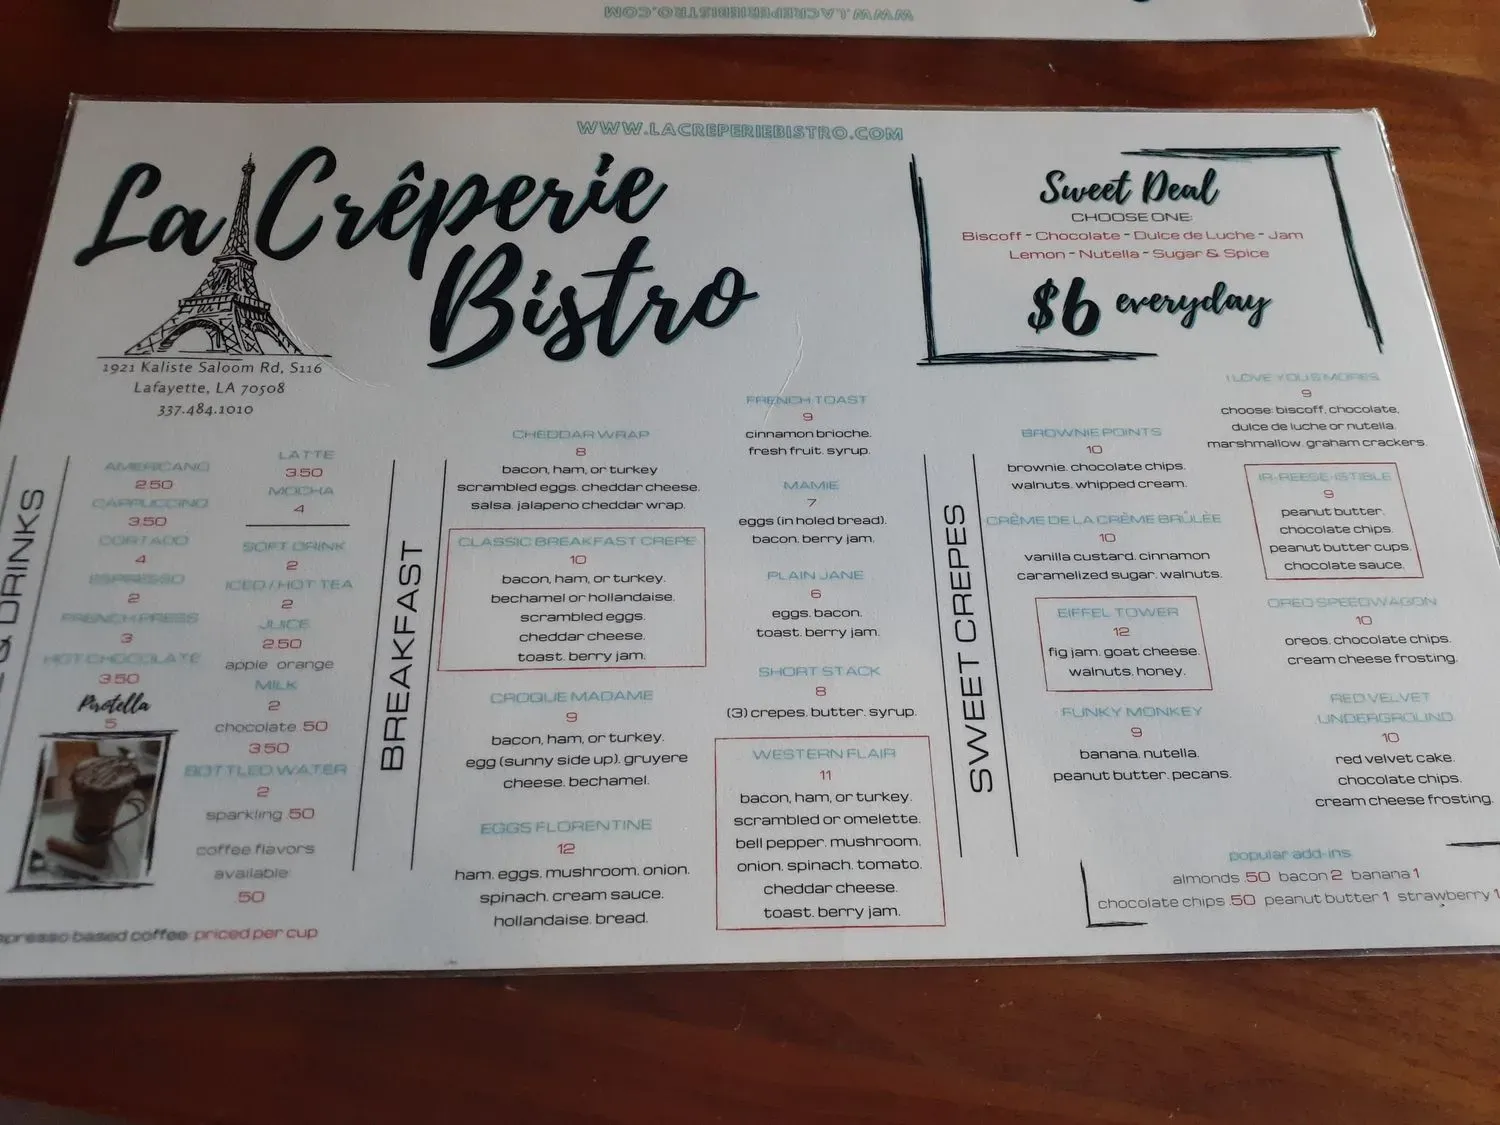 WWW.LACREPERIEBISTRO.COM
WWW.LACREPERIEBISTRO.COM
La Crêperie
Bistro
1921 Kaliste Saloom Rd, S116
Lafayette, LA 70508
337.484.1010
Sweet Deal
CHOOSE ONE:
Biscoff - Chocolate - Dulce de Luche - Jam
Lemon - Nutella - Sugar & Spice
$6 everyday
& DRINKS
AMERICANO
2.50
CAPPUCCINO
3.50
CORTADO
4
ESPRESSO
2
FRENCH PRESS
3
HOT CHOCOLATE
3.50
Pirotella
5
LATTE
3.50
MOCHA
4
SOFT DRINK
2
ICED / HOT TEA
2
JUICE
2.50
apple orange
MILK
2
chocolate .50
3.50
BOTTLED WATER
2
sparkling .50
coffee flavors
available
.50
based coffee priced per cup
BREAKFAST
CHEDDAR WRAP
8
bacon, ham, or turkey
scrambled eggs. cheddar cheese.
salsa. jalapeno cheddar wrap.
CLASSIC BREAKFAST CREPE
10
bacon, ham, or turkey.
bechamel or hollandaise.
scrambled eggs.
cheddar cheese.
toast. berry jam.
CROQUE MADAME
9
bacon, ham, or turkey.
egg (sunny side up). gruyere
cheese. bechamel.
EGGS FLORENTINE
12
ham. eggs. mushroom. onion.
spinach. cream sauce.
hollandaise. bread.
FRENCH TOAST
9
cinnamon brioche.
fresh fruit. syrup.
MAMIE
7
eggs (in holed bread).
bacon. berry jam.
PLAIN JANE
6
eggs. bacon.
toast. berry jam.
SHORT STACK
8
(3) crepes. butter. syrup.
WESTERN FLAIR
11
bacon, ham, or turkey.
scrambled or omelette.
bell pepper. mushroom.
onion. spinach. tomato.
cheddar cheese.
toast. berry jam.
SWEET CREPES
BROWNIE POINTS
10
brownie. chocolate chips.
walnuts. whipped cream.
CRÈME DE LA CRÈME BRÛLÈE
10
vanilla custard. cinnamon
caramelized sugar. walnuts.
EIFFEL TOWER
12
fig jam. goat cheese.
walnuts. honey.
FUNKY MONKEY
9
banana. nutella.
peanut butter. pecans.
I LOVE YOU S'MORES
9
choose: biscoff, chocolate,
dulce de luche or nutella.
marshmallow. graham crackers.
IR-REESE-ISTIBLE
9
peanut butter.
chocolate chips.
peanut butter cups.
chocolate sauce.
OREO SPEEDWAGON
10
oreos. chocolate chips.
cream cheese frosting.
RED VELVET
UNDERGROUND
10
red velvet cake.
chocolate chips.
cream cheese frosting.
popular add-ins
almonds .50 bacon 2 banana 1
chocolate chips .50 peanut butter 1 strawberry 1